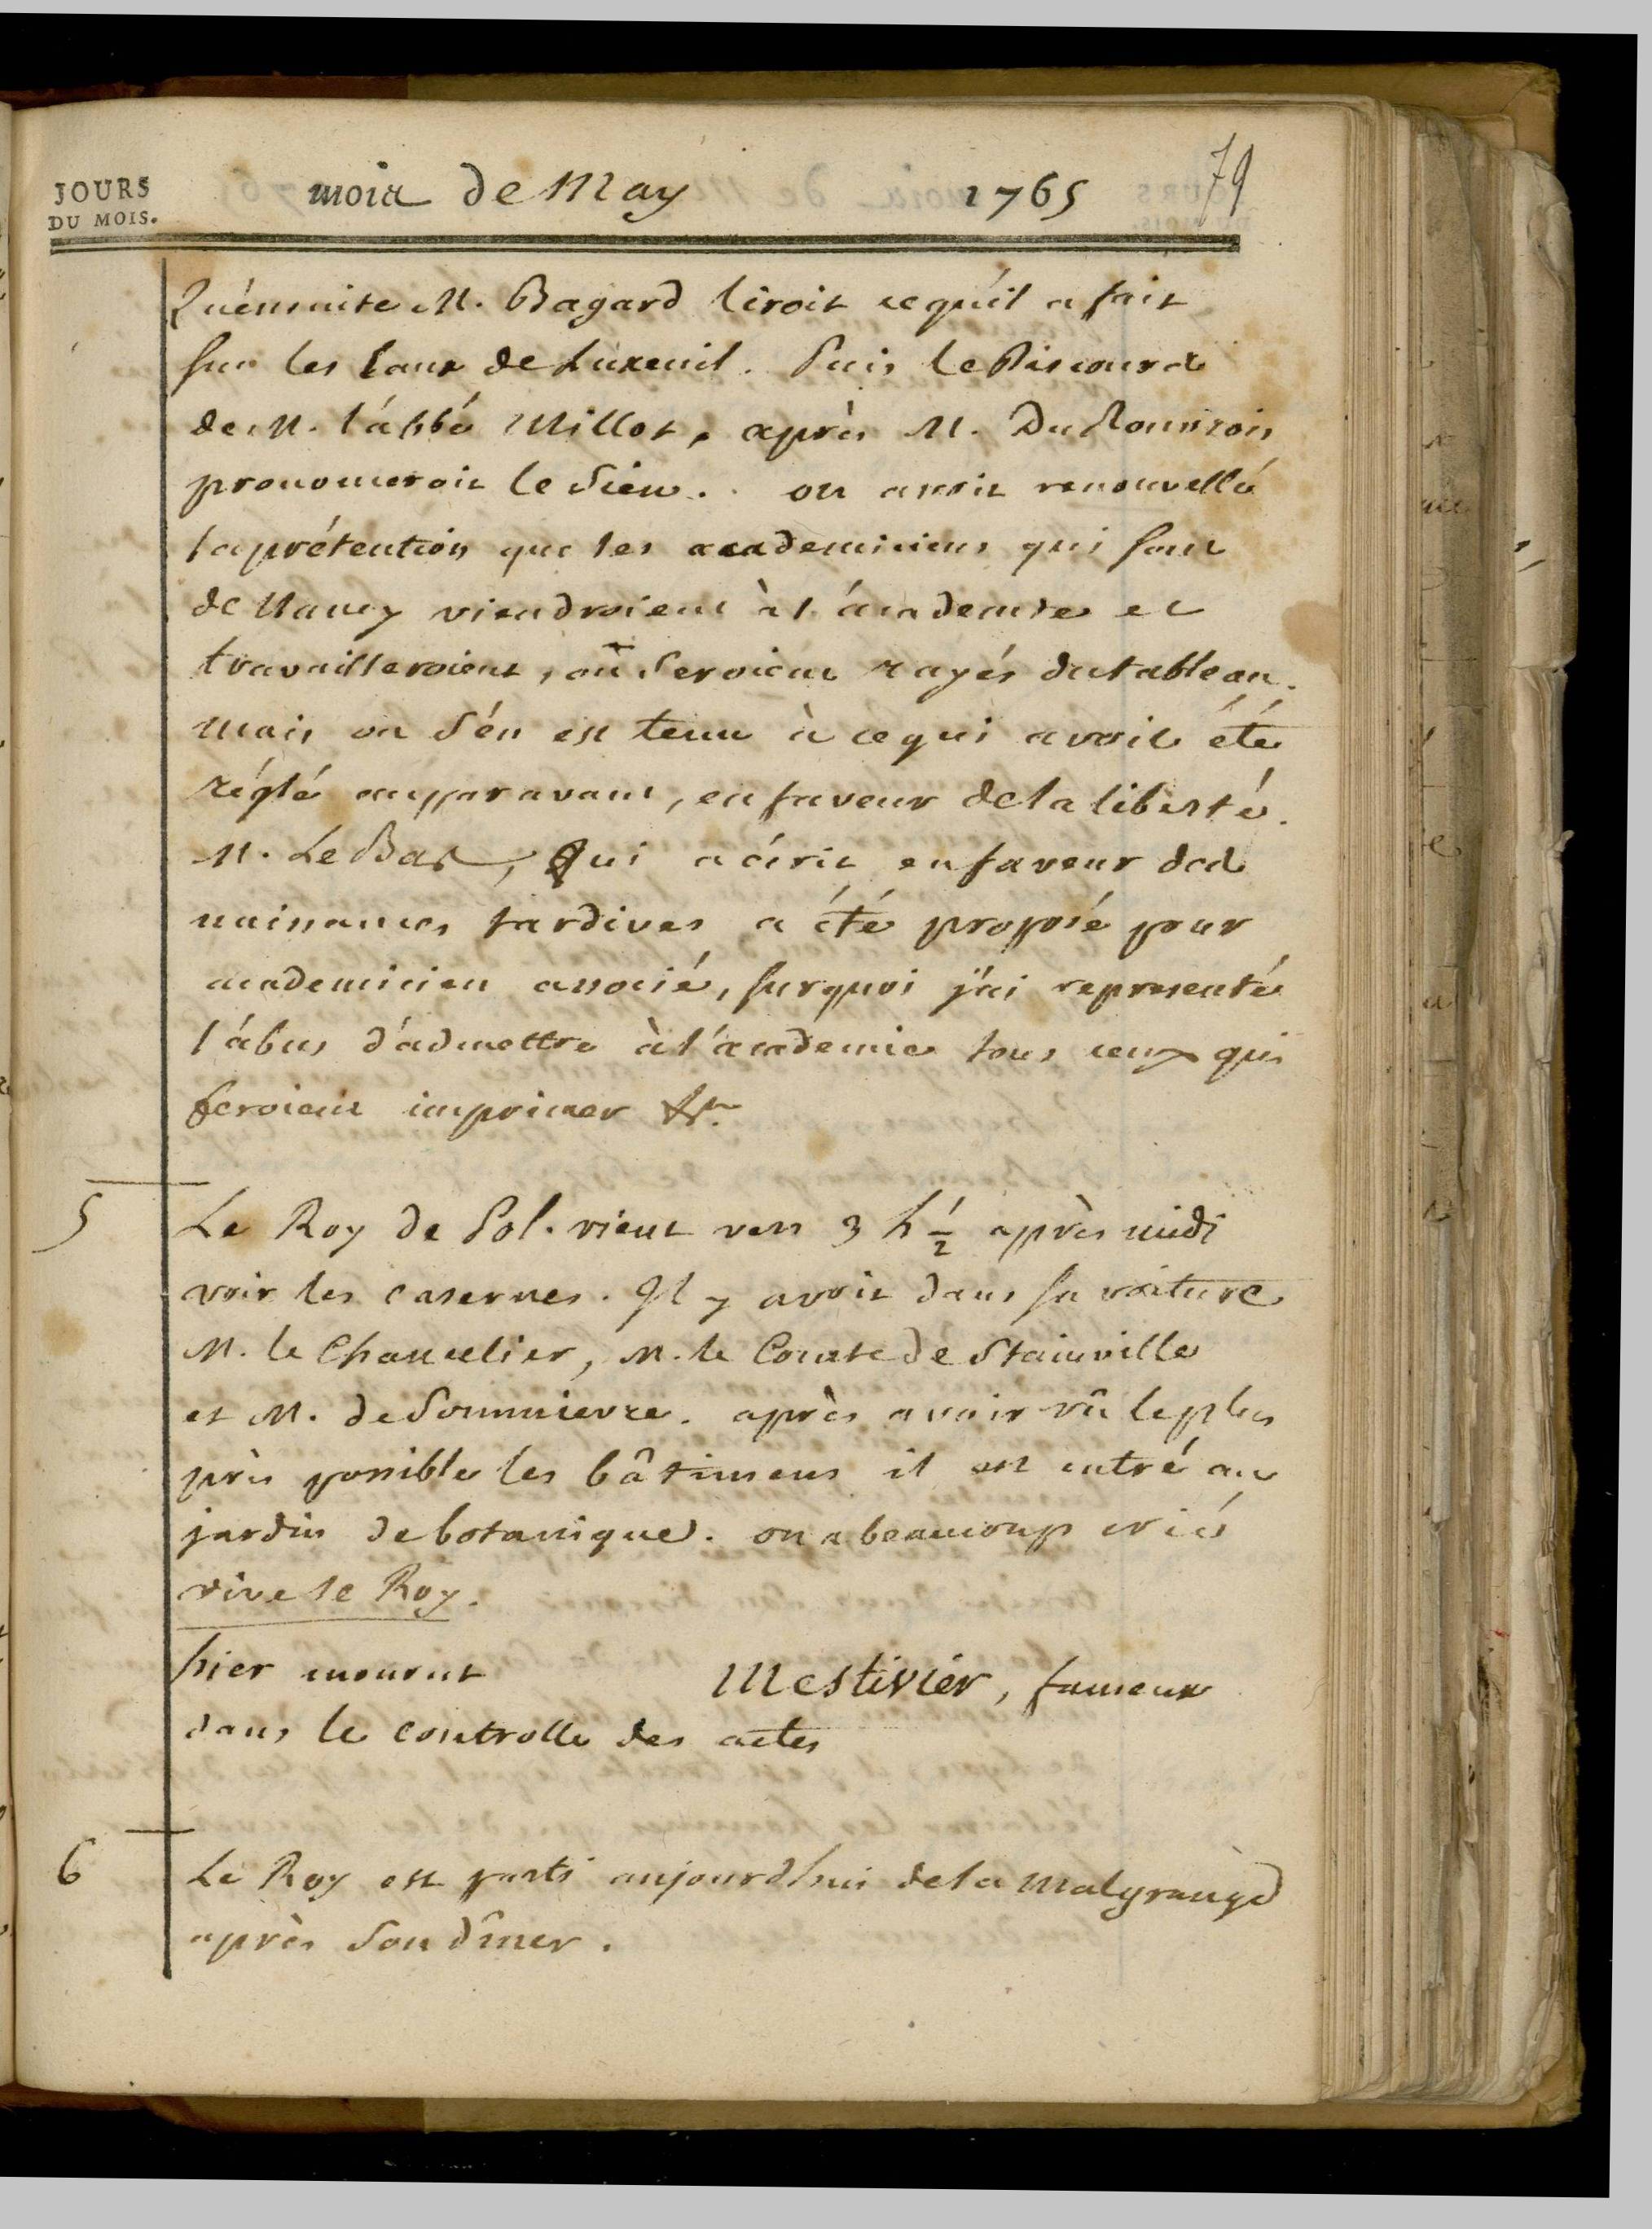 JOURS
DU MOIS.
mois de May 1765 79
Qu'énsuite M. Bagard liroit ce qu'il a fait
sur les Eaux de Luxeuil. Puis le Discours
de M. l'abbé Millot, après M. Du Rouvrois
prononceroit le sien. on avoit renouvellé
la prétention que les academiciens qui sont
de Nancy viendroient à l'academie et
travailleroient, ou seroient rayés du tableau.
mais on s'én est tenu à ce qui avoit été
réglé auparavant, en faveur de la liberté.
M. Le Bas, Qui a écrit en faveur des
naissances tardives a été proposé pour
academicien associé, surquoi j'ai representé
l'abus d'admettre à l'academie tous ceux qui
feroient imprimer &c.
5
Le Roy de Pol. vient vers 3 h ½ après midi
voir les casernes. Il y avoit dans sa voiture
M. le Chancelier, M. le Comte de Stainville
et M. de Sommievre. après avoir vû le plus
près possible les bâtimens il est entré au
jardin de botanique. on a beaucoup crié
vive le Roy.
hier mourut Mestivier, fameux
dans le controlle des actes
6
Le Roy est parti aujourdhui de la Malgrange
après son dîner.